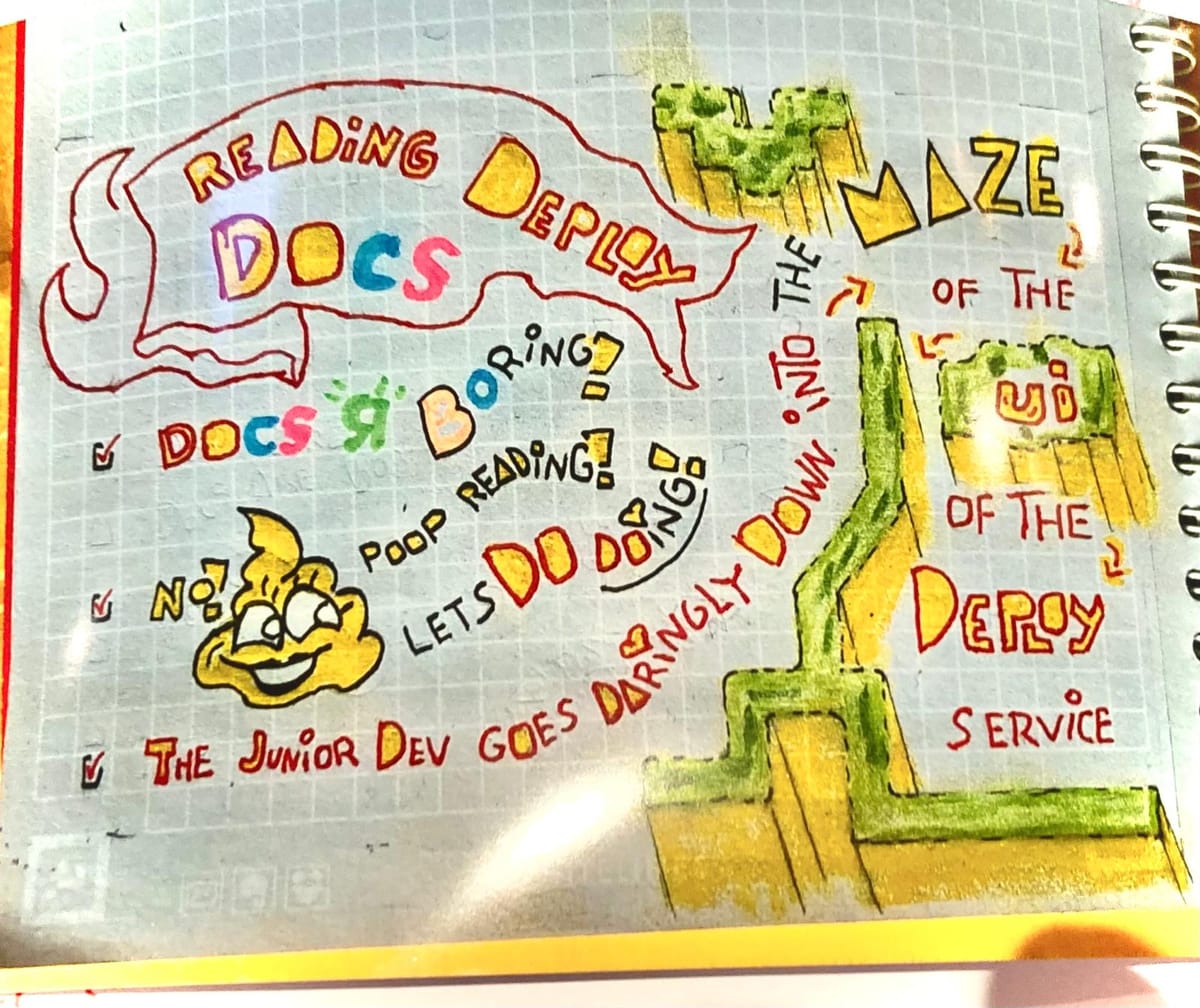 READING DEPLOY
DOCS
DOCS Я BORING?
NO! POOP READING!
LETS DO DOING!
THE JUNIOR DEV GOES DARINGLY DOWN INTO THE
MAZE
OF THE
UI
OF THE
DEPLOY
SERVICE